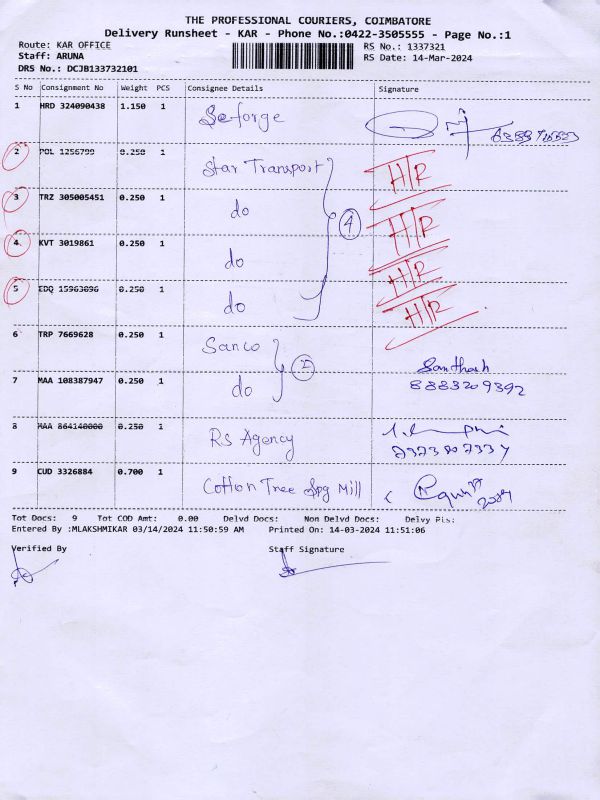 THE PROFESSIONAL COURIERS, COIMBATORE
Delivery Runsheet - KAR - Phone No.:0422-3505555 - Page No.:1
Route: KAR OFFICE RS No.: 1337321
Staff: ARUNA RS Date: 14-Mar-2024
DRS No.: DCJB133732101
S No Consignment No Weight PCS Consignee Details Signature
1 HRD 324090438 1.150 1 Seforge
2 POL 1256799 0.250 1 Star Transport H/R
3 TRZ 305005451 0.250 1 do H/R
4 KVT 3019861 0.250 1 do H/R
5 EDQ 15963096 0.250 1 do H/R
4
6 TRP 7669628 0.250 1 Sanco Santhosh
7 MAA 108387947 0.250 1 do 8883209392
8 MAA 864140000 0.250 1 RS Agency
9 CUD 3326884 0.700 1 Cotton Tree Spg Mill
Tot Docs: 9 Tot COD Amt: 0.00 Delvd Docs: Non Delvd Docs: Delvy Pis:
Entered By :MLAKSHMIKAR 03/14/2024 11:50:59 AM Printed On: 14-03-2024 11:51:06
Verified By Staff Signature